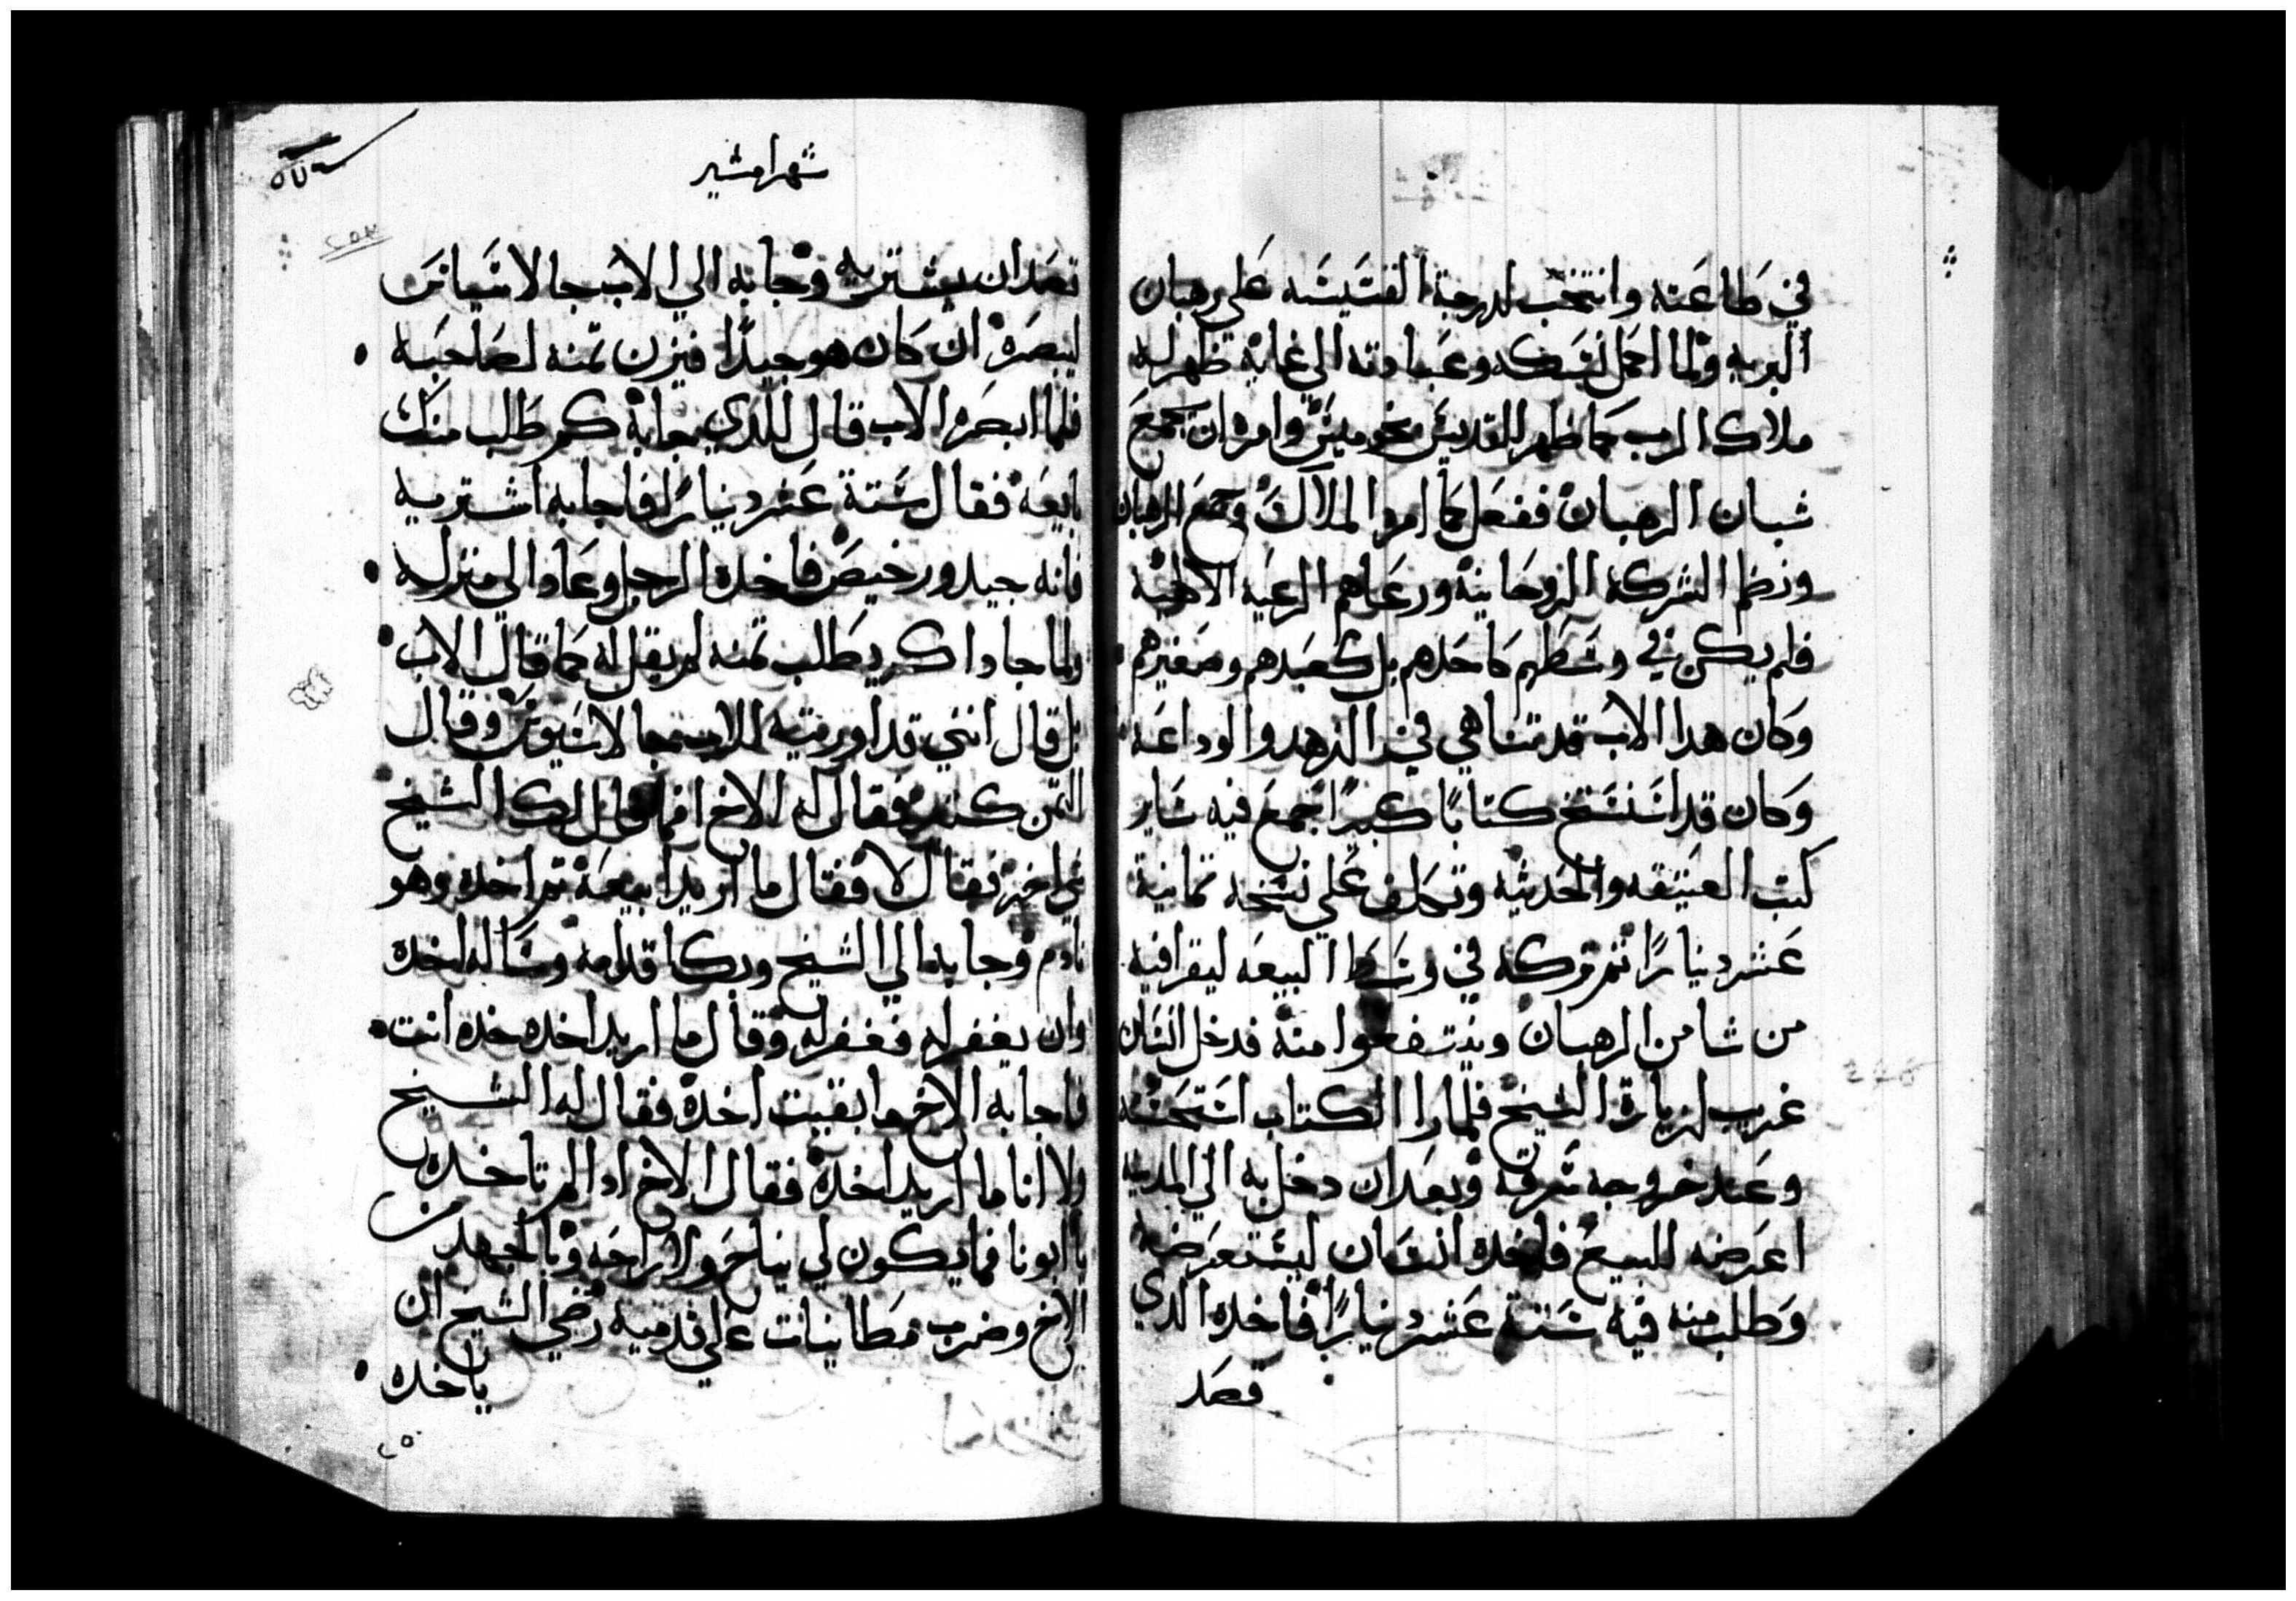 في طاعته وانتخب لدرجة القسيسه علي رهبان
البريه ولما اكمل نسكه وعبادته الي غاية ظهر له
ملاك الرب كما ظهر للقديس بخوميس وامره ان يجمع
شبان الرهبان ففعل كما امره الملاك وجمع الرهبان
ونظم الشركه الروحانيه ورعاهم الرعيه الالهيه
فلم يكن في وسطهم كاحدهم بل كعبدهم وصغيرهم
وكان هدا الاب قد تناهي في الزهد والوداعه
وكان قد استنسخ كتابًا كبيرًا جمع فيه ساير
كتب العتيقه والحديثه وتكلف علي نسخه تمانية
عشر دينارًا تم تركه في وسط البيعه ليقرا فيه
من شا من الرهبان وينتفعوا منه فدخل انسان
غريب لزيارة الشيخ فلما را الكتاب استحسنه
وعند خروجه سرقه وبعد ان دخل به الي المدينه
اعرضه للبيع فاخده انسان ليستعرضه
وطلب منه فيه ستة عشر دينارًا فاخده الدي
قصد
شهر امشير
قصد ان يشتريه وجا به الي الاب جالاسيانس
ليبصره ان كان هو جيدًا فيزن تمنه لصاحبه
فلما ابصره الاب قال للدي جابه كم طلب منك
بايعه فقال ستة عشر دينارًا فاجابه اشتريه
فانه جيد ورخيص فاخده الرجل وعاد الي منزله
ولما جا داك يطلب تمنه لم يقل له كما قال الاب
بل قال انني قد اوريته للاب جالاسيوس وقال
التمن كتير فقال له الاخ افما قال لك الشيخ
شي اخر فقال لا فقال ما اريد ابيعه تم اخده وهو
نادم وجا به الي الشيخ وبكا قدامه وساله اخده
وان يغفر له فغفر له وقال ما اريد اخده خده انت
فاجابه الاخ ما بقيت اخده فقال له الشيخ
ولا انا ما اريد اخده فقال الاخ ادا لم تاخده
يا ابونا فما يكون لي نياح ولا راحه وبالجهد من
الاخ وضرب مطانيات علي قدميه رضي الشيخ ان
ياخده